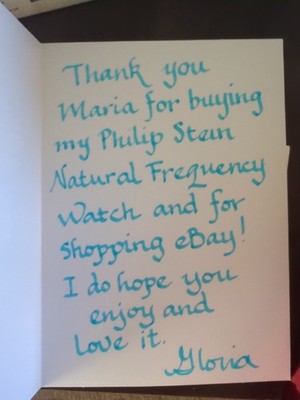 Thank you
Maria for buying
my Philip Stein
Natural Frequency
Watch and for
shopping eBay!
I do hope you
enjoy and
love it.
Gloria